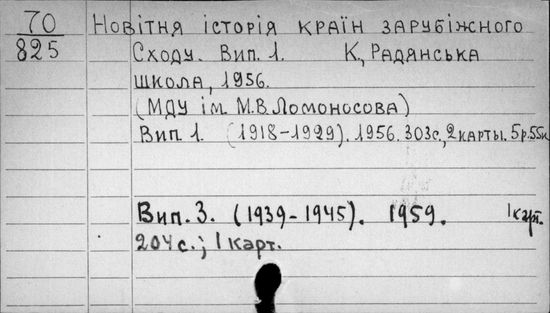 70
825
Новітня історія країн зарубіжного
Сходу. Вип. 1. К, Радянська
школа, 1956.
(МДУ ім. М.В. Ломоносова)
Вип 1. (1918-1929). 1956. 303с., 2 карты. 5р.55к
Вип. 3. (1939-1945). 1959. 1 карт.
204 с.; 1 карт.